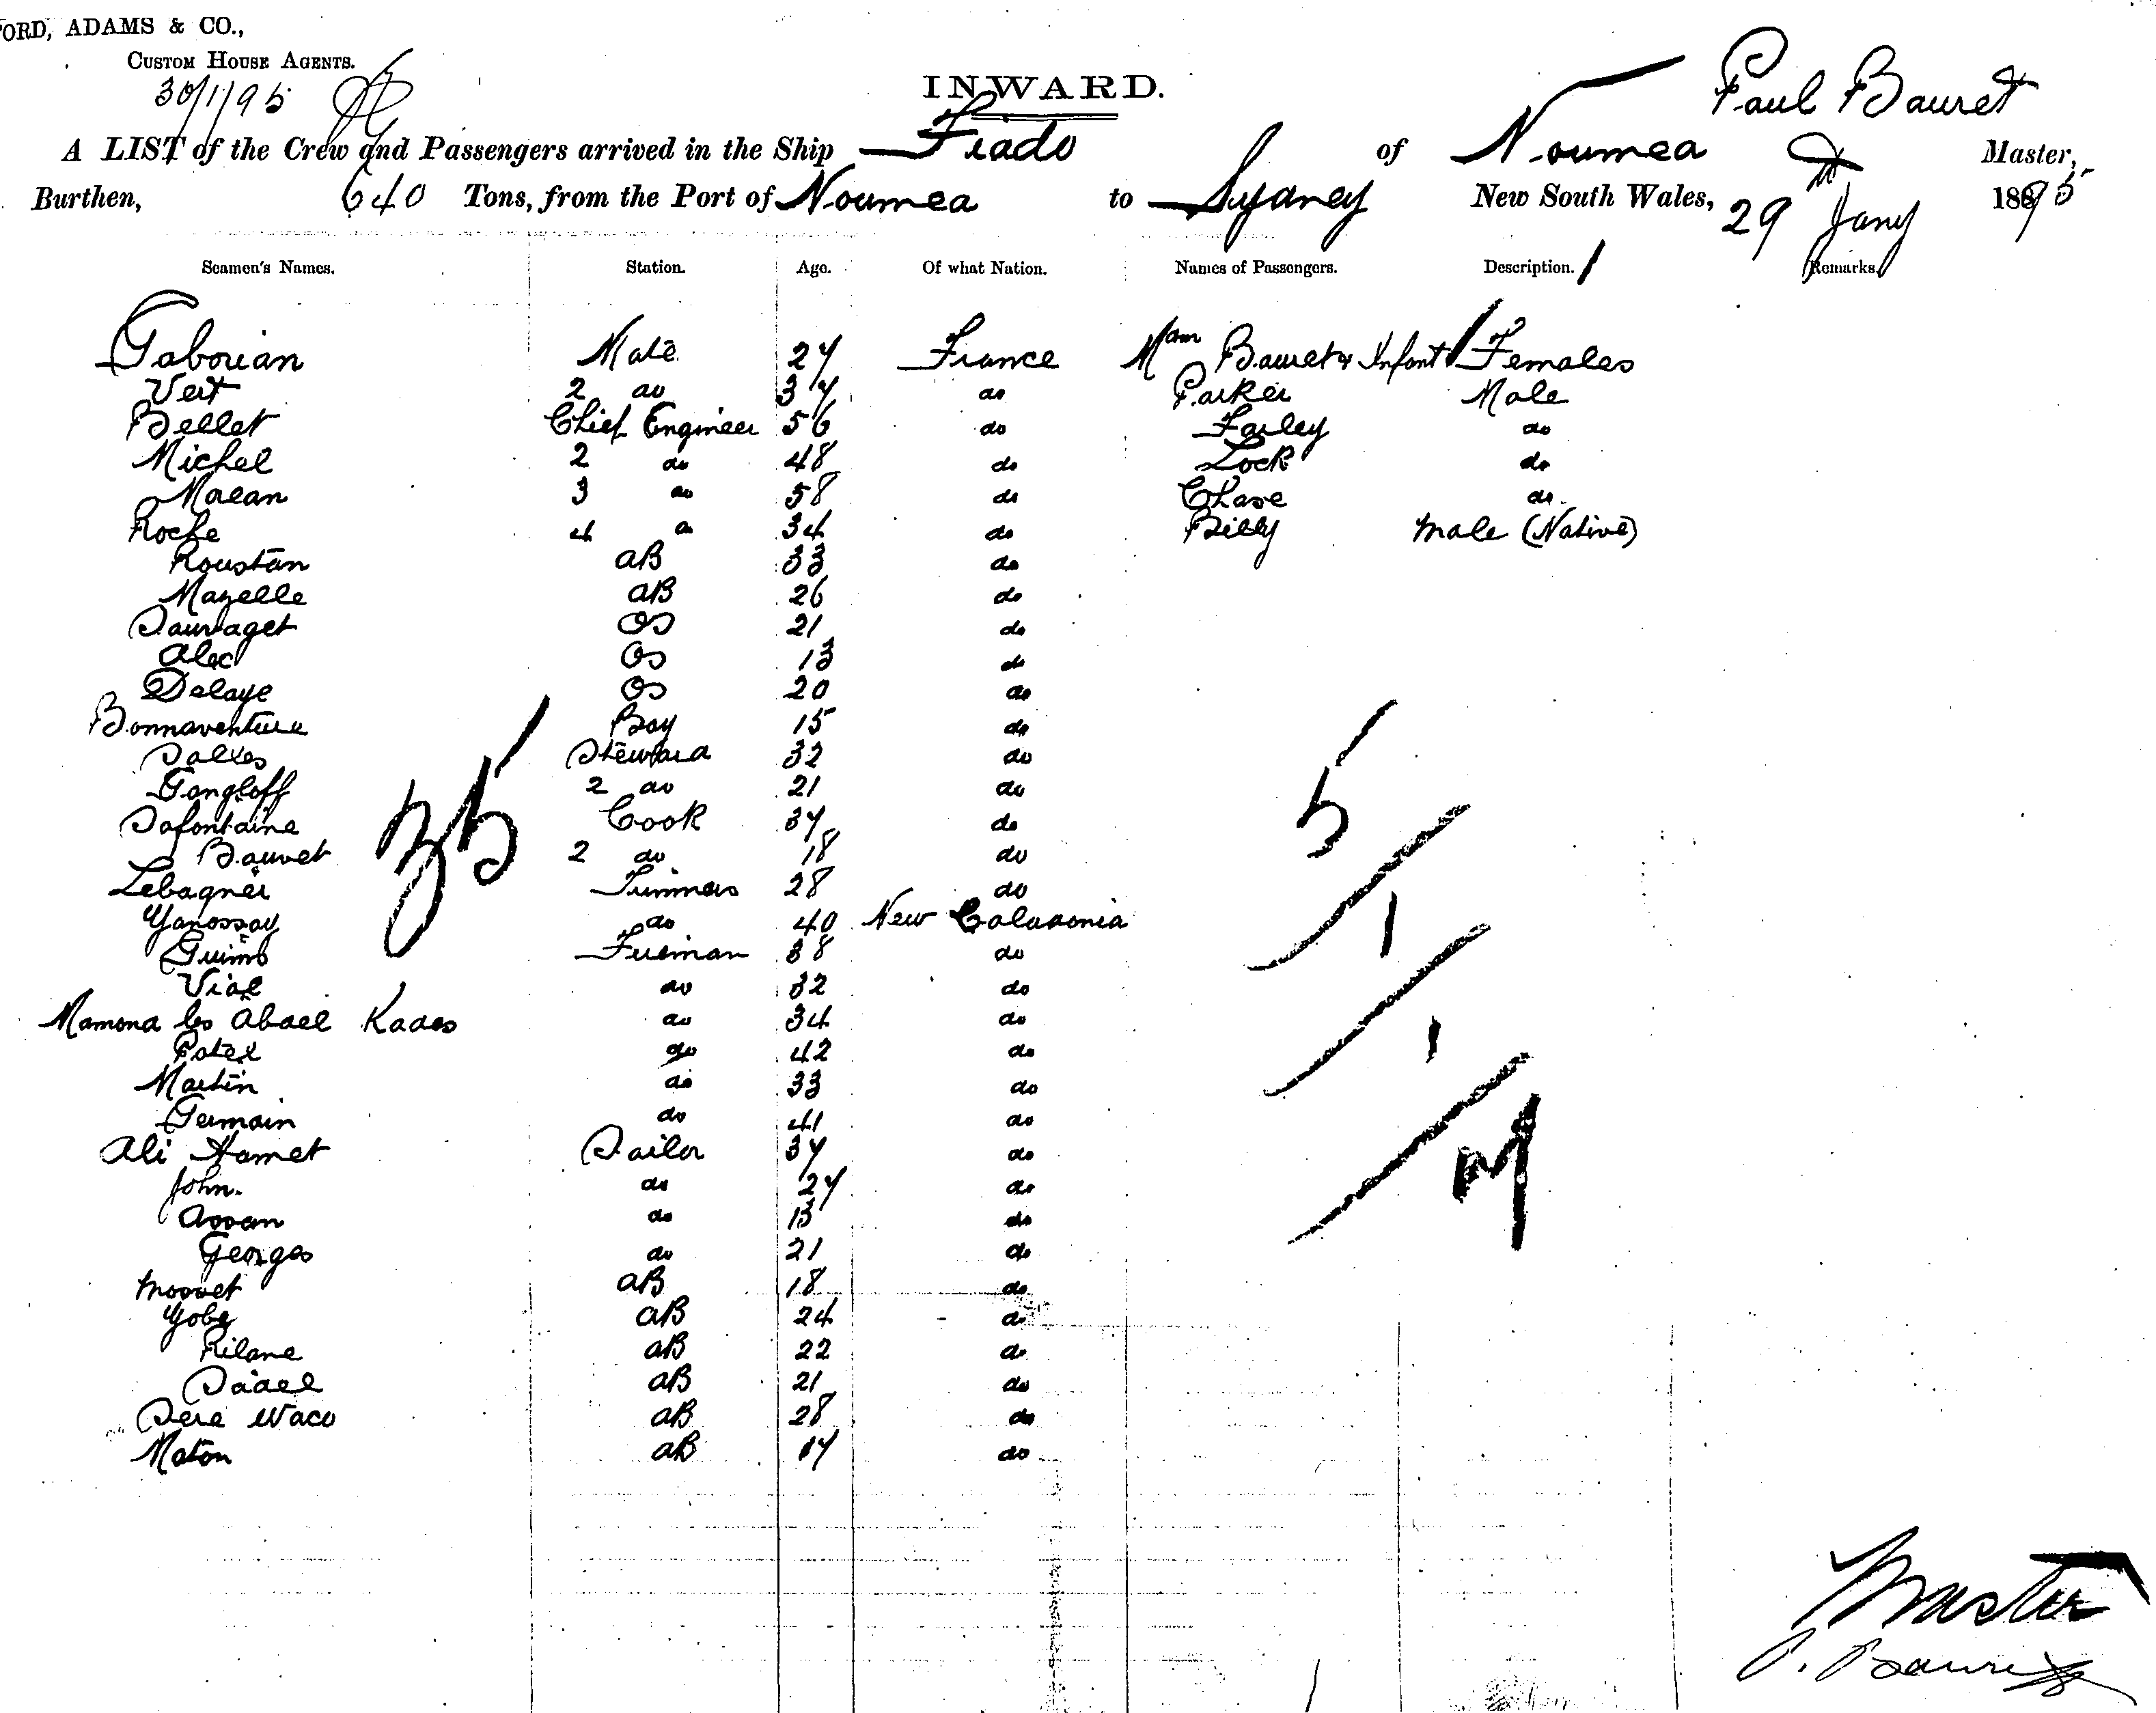 FORD, ADAMS & CO.,
CUSTOM HOUSE AGENTS.
30/1/95
INWARD.
Paul Bauret
A LIST of the Crew and Passengers arrived in the Ship Fiado of Noumea Master,
Burthen, 640 Tons, from the Port of Noumea to Sydney New South Wales, 29th Jany 1895
Seamen's Names. Station. Age. Of what Nation. Names of Passengers. Description. Remarks.
Gabourian Mate 27 France Mam Bauret & Infant Females
Vert 2 do 37 do Parker Male
Bellet Chief Engineer 56 do Farley do
Michel 2 do 48 do Lock do
Malan 3 do 58 do Chase do
Roche 4 do 34 do Billy Male (Native)
Roustan AB 33 do
Mazelle AB 26 do
Sauvaget OS 21 do
Alec OS 13 do
Delaye OS 20 do
Bonnaventure Boy 15 do
Steward 32 do
Gangloff 2 do 21 do
Lafontaine Cook 37 do
Bauvet 2 do 18 do
Lebagner Trimmers 28 do
Yanossay do 40 New Caledonia
Fireman 38 do
Vial do 32 do
Abdel Kades do 34 do
Patex do 42 do
Martin do 33 do
Germain do 41 do
Ali Hamet Sailor 37 do
John do 27 do
Assan do 13 do
Georges do 21 do
Mosset AB 18 do
Yobe AB 24 do
Rilane AB 22 do
AB 21 do
Pere Waco AB 28 do
Maton AB 17 do
35
5
1
1
7
Master
P. Bauret